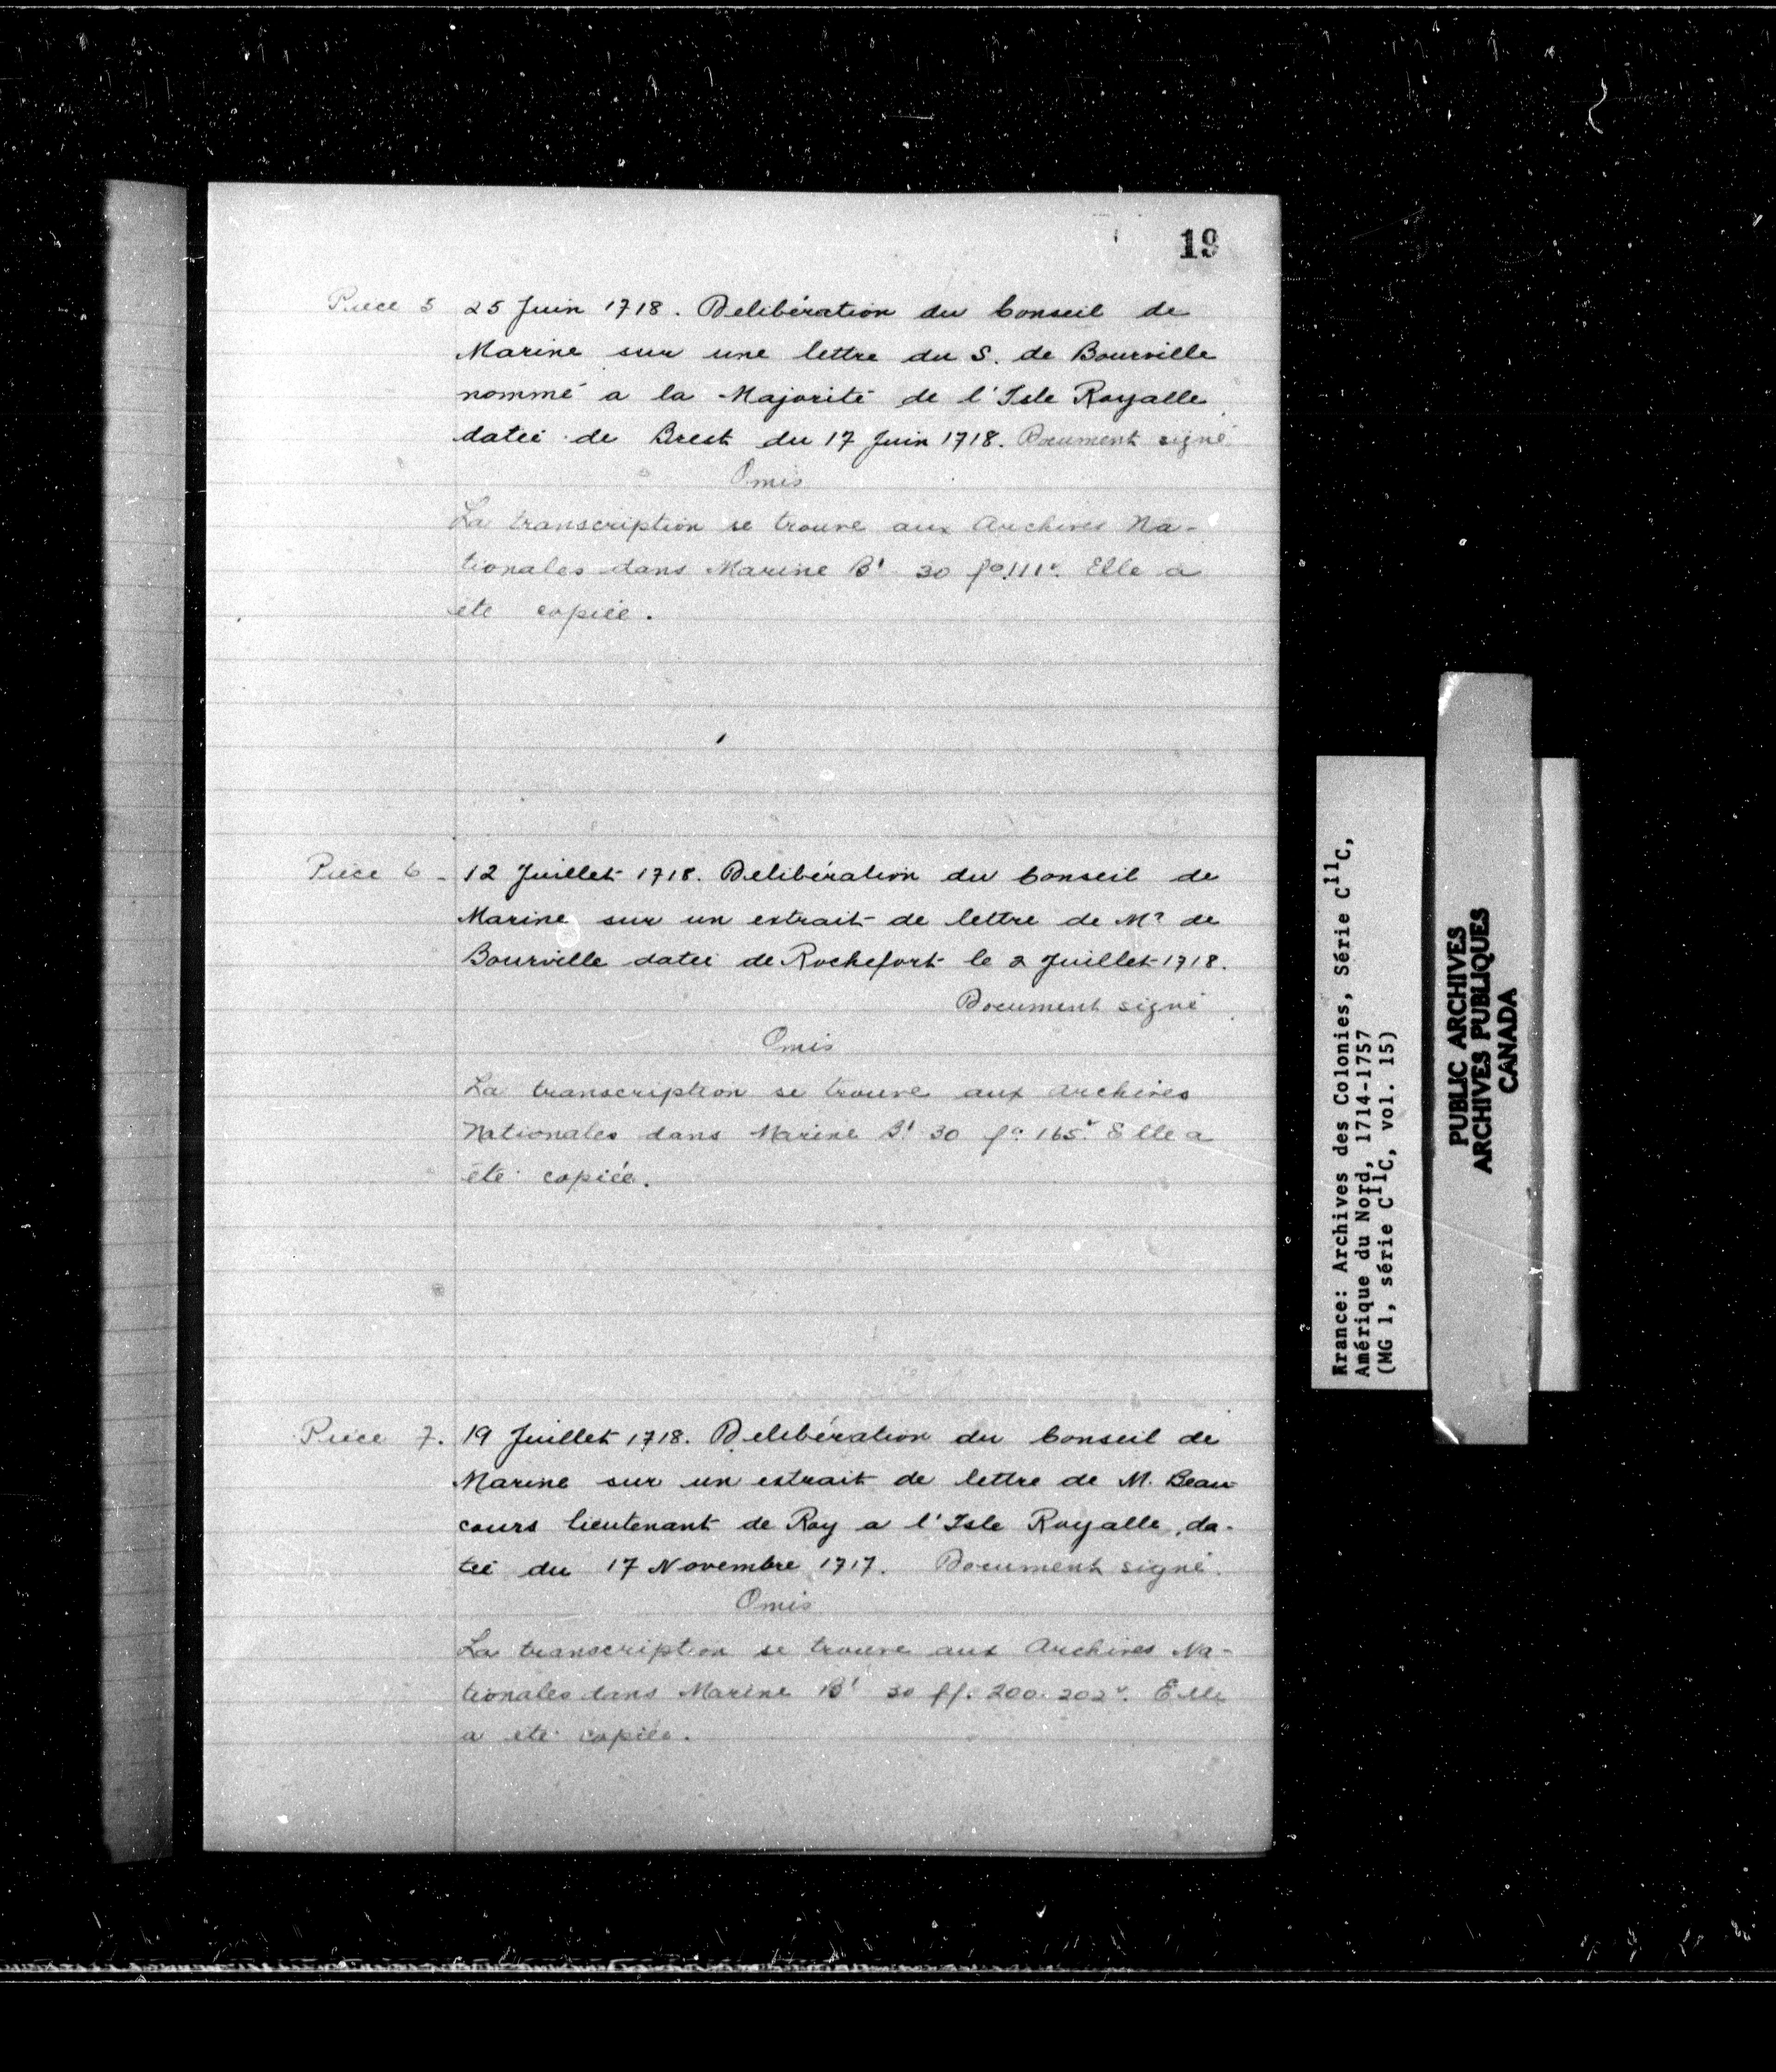 19
Pièce 5 25 Juin 1718. Delibération du Conseil de
Marine sur une lettre du S. de Bourville
nommé a la Majorité de l'Isle Royalle
datée de Brest du 17 Juin 1718. Document signé
Omis
La transcription se trouve aux Archives Na-
tionales dans Marine B¹ 30 fo. 111v. Elle a
été copiée.
Pièce 6 - 12 Juillet 1718. Delibération du Conseil de
Marine sur un extrait de lettre de Mr de
Bourville datée de Rochefort le 2 Juillet 1718.
Document signé
Omis
La transcription se trouve aux archives
Nationales dans Marine B¹ 30 fo. 165v. Elle a
été copiée.
Pièce 7. 19 Juillet 1718. Delibération du Conseil de
Marine sur un extrait de lettre de M. Beau
cours lieutenant de Roy a l'Isle Royalle, da-
tée du 17 Novembre 1717. Document signé.
Omis
La transcription se trouve aux Archives Na-
tionales dans Marine B¹ 30 ff. 200-202v. Elle
a été copiée.
France: Archives des Colonies, Série C¹¹C,
Amérique du Nord, 1714-1757
(MG 1, série C¹¹C, vol. 15)
PUBLIC ARCHIVES
ARCHIVES PUBLIQUES
CANADA